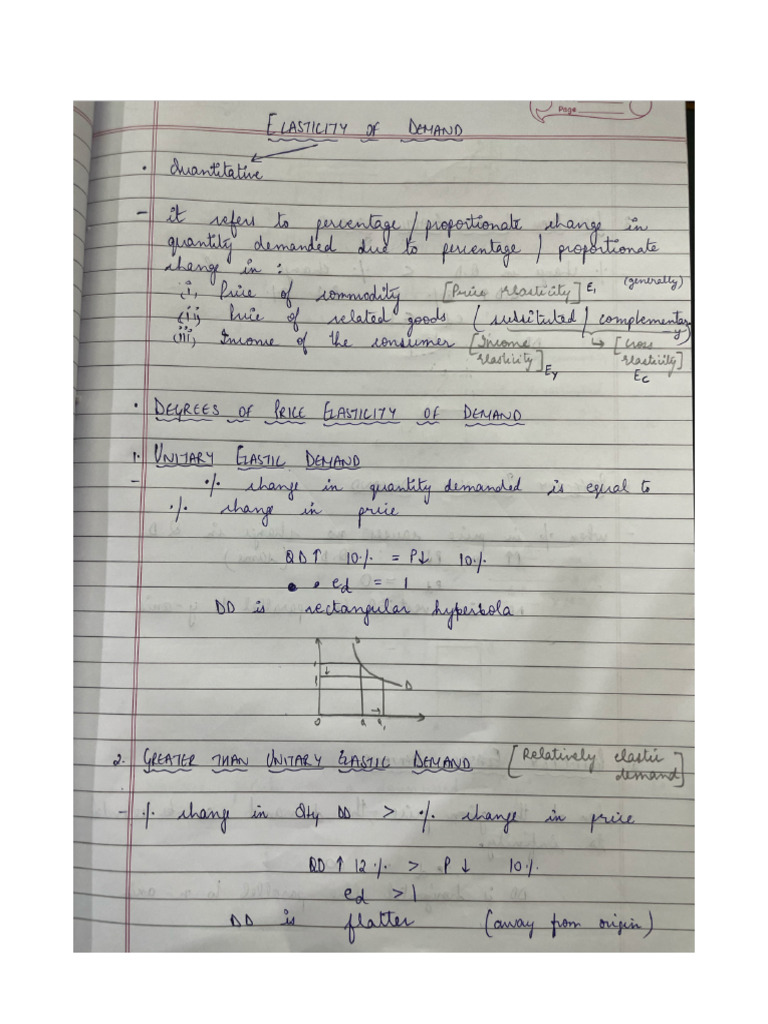 Page
ELASTICITY OF DEMAND
• Quantitative
- it refers to percentage / proportionate change in
quantity demanded due to percentage / proportionate
change in :
(i) Price of commodity [Price elasticity] E₁ (generally)
(ii) Price of related goods (substituted / complementary)
(iii) Income of the consumer [Income elasticity] Ey → [Cross elasticity] Ec
• DEGREES OF PRICE ELASTICITY OF DEMAND
1. UNITARY ELASTIC DEMAND
- % change in quantity demanded is equal to
% change in price
QD↑ 10% = P↓ 10%
ed = 1
DD is rectangular hyperbola
D
D
O
2. GREATER THAN UNITARY ELASTIC DEMAND [Relatively elastic demand]
- % change in Qty DD > % change in price
QD ↑ 12% > P ↓ 10%
ed > 1
DD is flatter (away from origin)